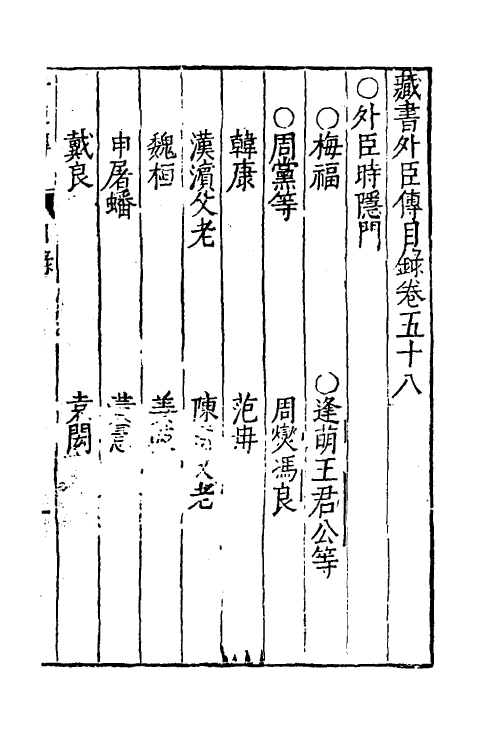 藏書外臣傳目錄卷五十八
○外臣時隱門
○梅福 ○逢萌王君公等
○周黨等 周燮馮良
韓康 范冉
漢濱父老 陳 父老
魏桓 姜
申屠蟠 黃憲
戴良 袁閎